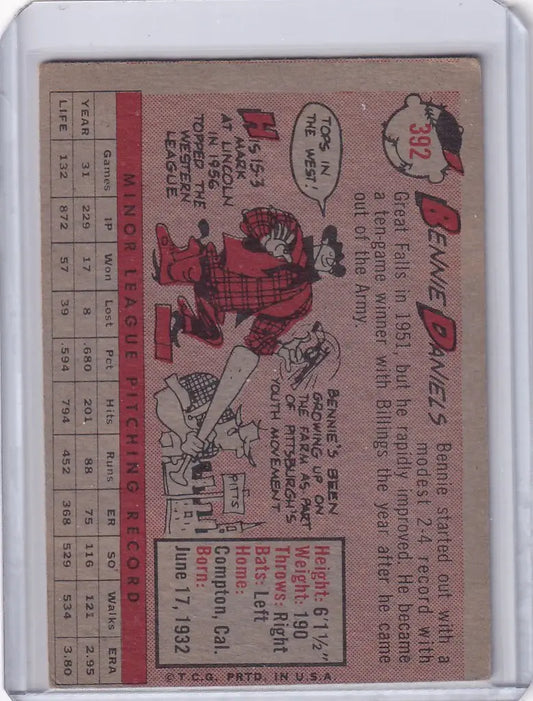 392
BENNIE DANIELS
Bennie started out with a
modest 2-4 record with
Great Falls in 1951, but he rapidly improved. He became
a ten-game winner with Billings the year after he came
out of the Army.
TOPS IN
THE WEST!
HIS 15-3
MARK
AT LINCOLN
IN 1956
TOPPED THE
WESTERN
LEAGUE
BENNIE'S BEEN
GROWING UP ON
THE FARM AS PART
OF PITTSBURGH'S
YOUTH MOVEMENT
PITTS
Height: 6'1½"
Weight: 190
Throws: Right
Bats: Left
Home:
Compton, Cal.
Born:
June 17, 1932
MINOR LEAGUE PITCHING RECORD
Games IP Won Lost Pct Hits Runs ER SO Walks ERA
YEAR 31 229 17 8 .680 201 88 75 116 121 2.95
LIFE 132 872 57 39 .594 794 452 368 529 534 3.80
©T.C.G. PRTD. IN U.S.A.